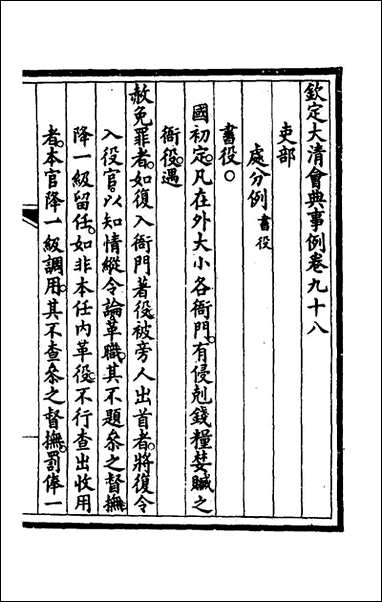 欽定大清會典事例卷九十八
吏部
處分例書役
書役○
國初定。凡在外大小各衙門。有侵剋錢糧婪贓之
衙役。遇
赦免罪者。如復入衙門著役。被旁人出首者。將復令
入役官。以知情縱令論。革職。其不題叅之督撫
降一級留任。如非本任內革役。不行查出收用
者。本官降一級調用。其不查叅之督撫。罰俸一